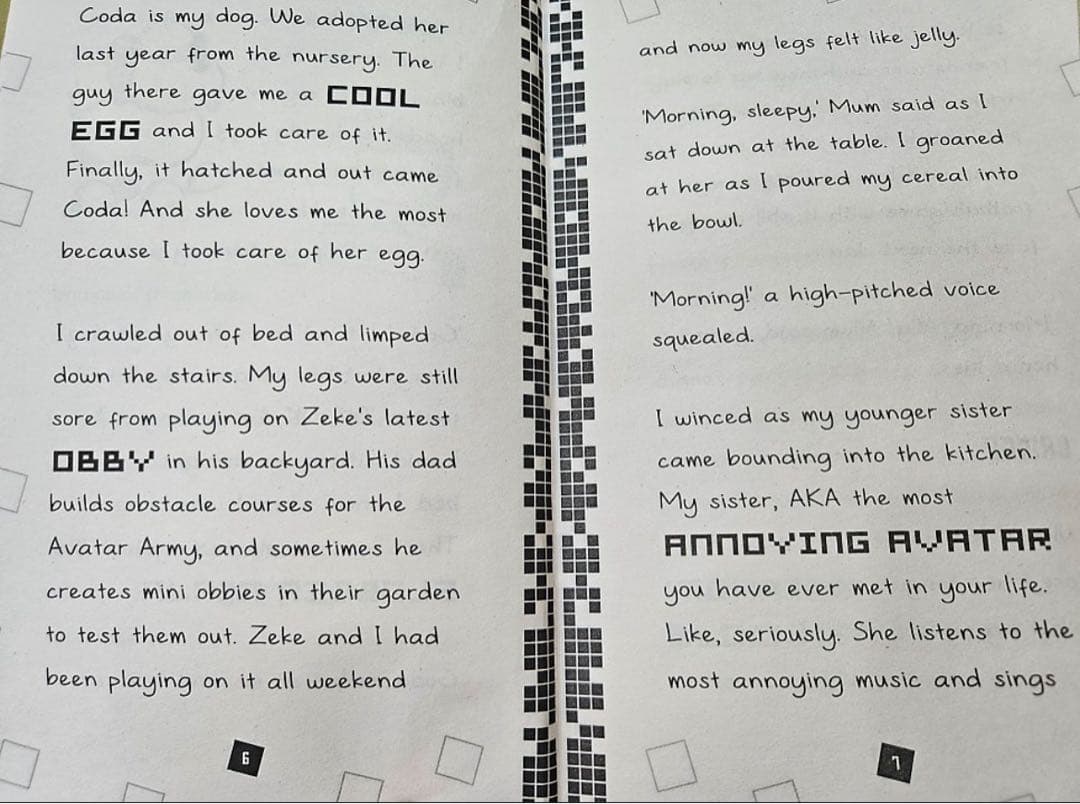 Coda is my dog. We adopted her
last year from the nursery. The
guy there gave me a COOL
EGG and I took care of it.
Finally, it hatched and out came
Coda! And she loves me the most
because I took care of her egg.
I crawled out of bed and limped
down the stairs. My legs were still
sore from playing on Zeke's latest
OBBY in his backyard. His dad
builds obstacle courses for the
Avatar Army, and sometimes he
creates mini obbies in their garden
to test them out. Zeke and I had
been playing on it all weekend
6
and now my legs felt like jelly.
'Morning, sleepy,' Mum said as I
sat down at the table. I groaned
at her as I poured my cereal into
the bowl.
'Morning!' a high-pitched voice
squealed.
I winced as my younger sister
came bounding into the kitchen.
My sister, AKA the most
ANNOYING AVATAR
you have ever met in your life.
Like, seriously. She listens to the
most annoying music and sings
7